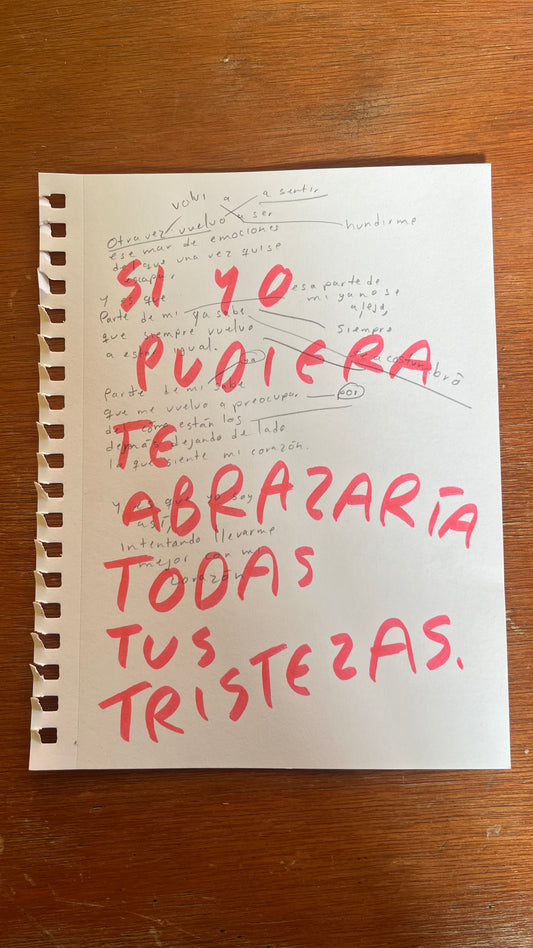 volví a a sentir
Otra vez vuelvo a ser hundirme
ese mar de emociones
del que una vez quise
escapar,
Y es que esa parte de
Parte de mi ya sabe mi ya no se
aleja,
que siempre vuelvo siempre
a esto igual.
se acostumbró
Parte de mi sabe ya
que me vuelvo a preocupar por
de cómo están los
demás dejando de lado
lo que siente mi corazón.
Y es que yo soy
así,
Intentando llevarme
mejor con mi
corazón
SI YO
PUDIERA
TE
ABRAZARÍA
TODAS
TUS
TRISTEZAS.